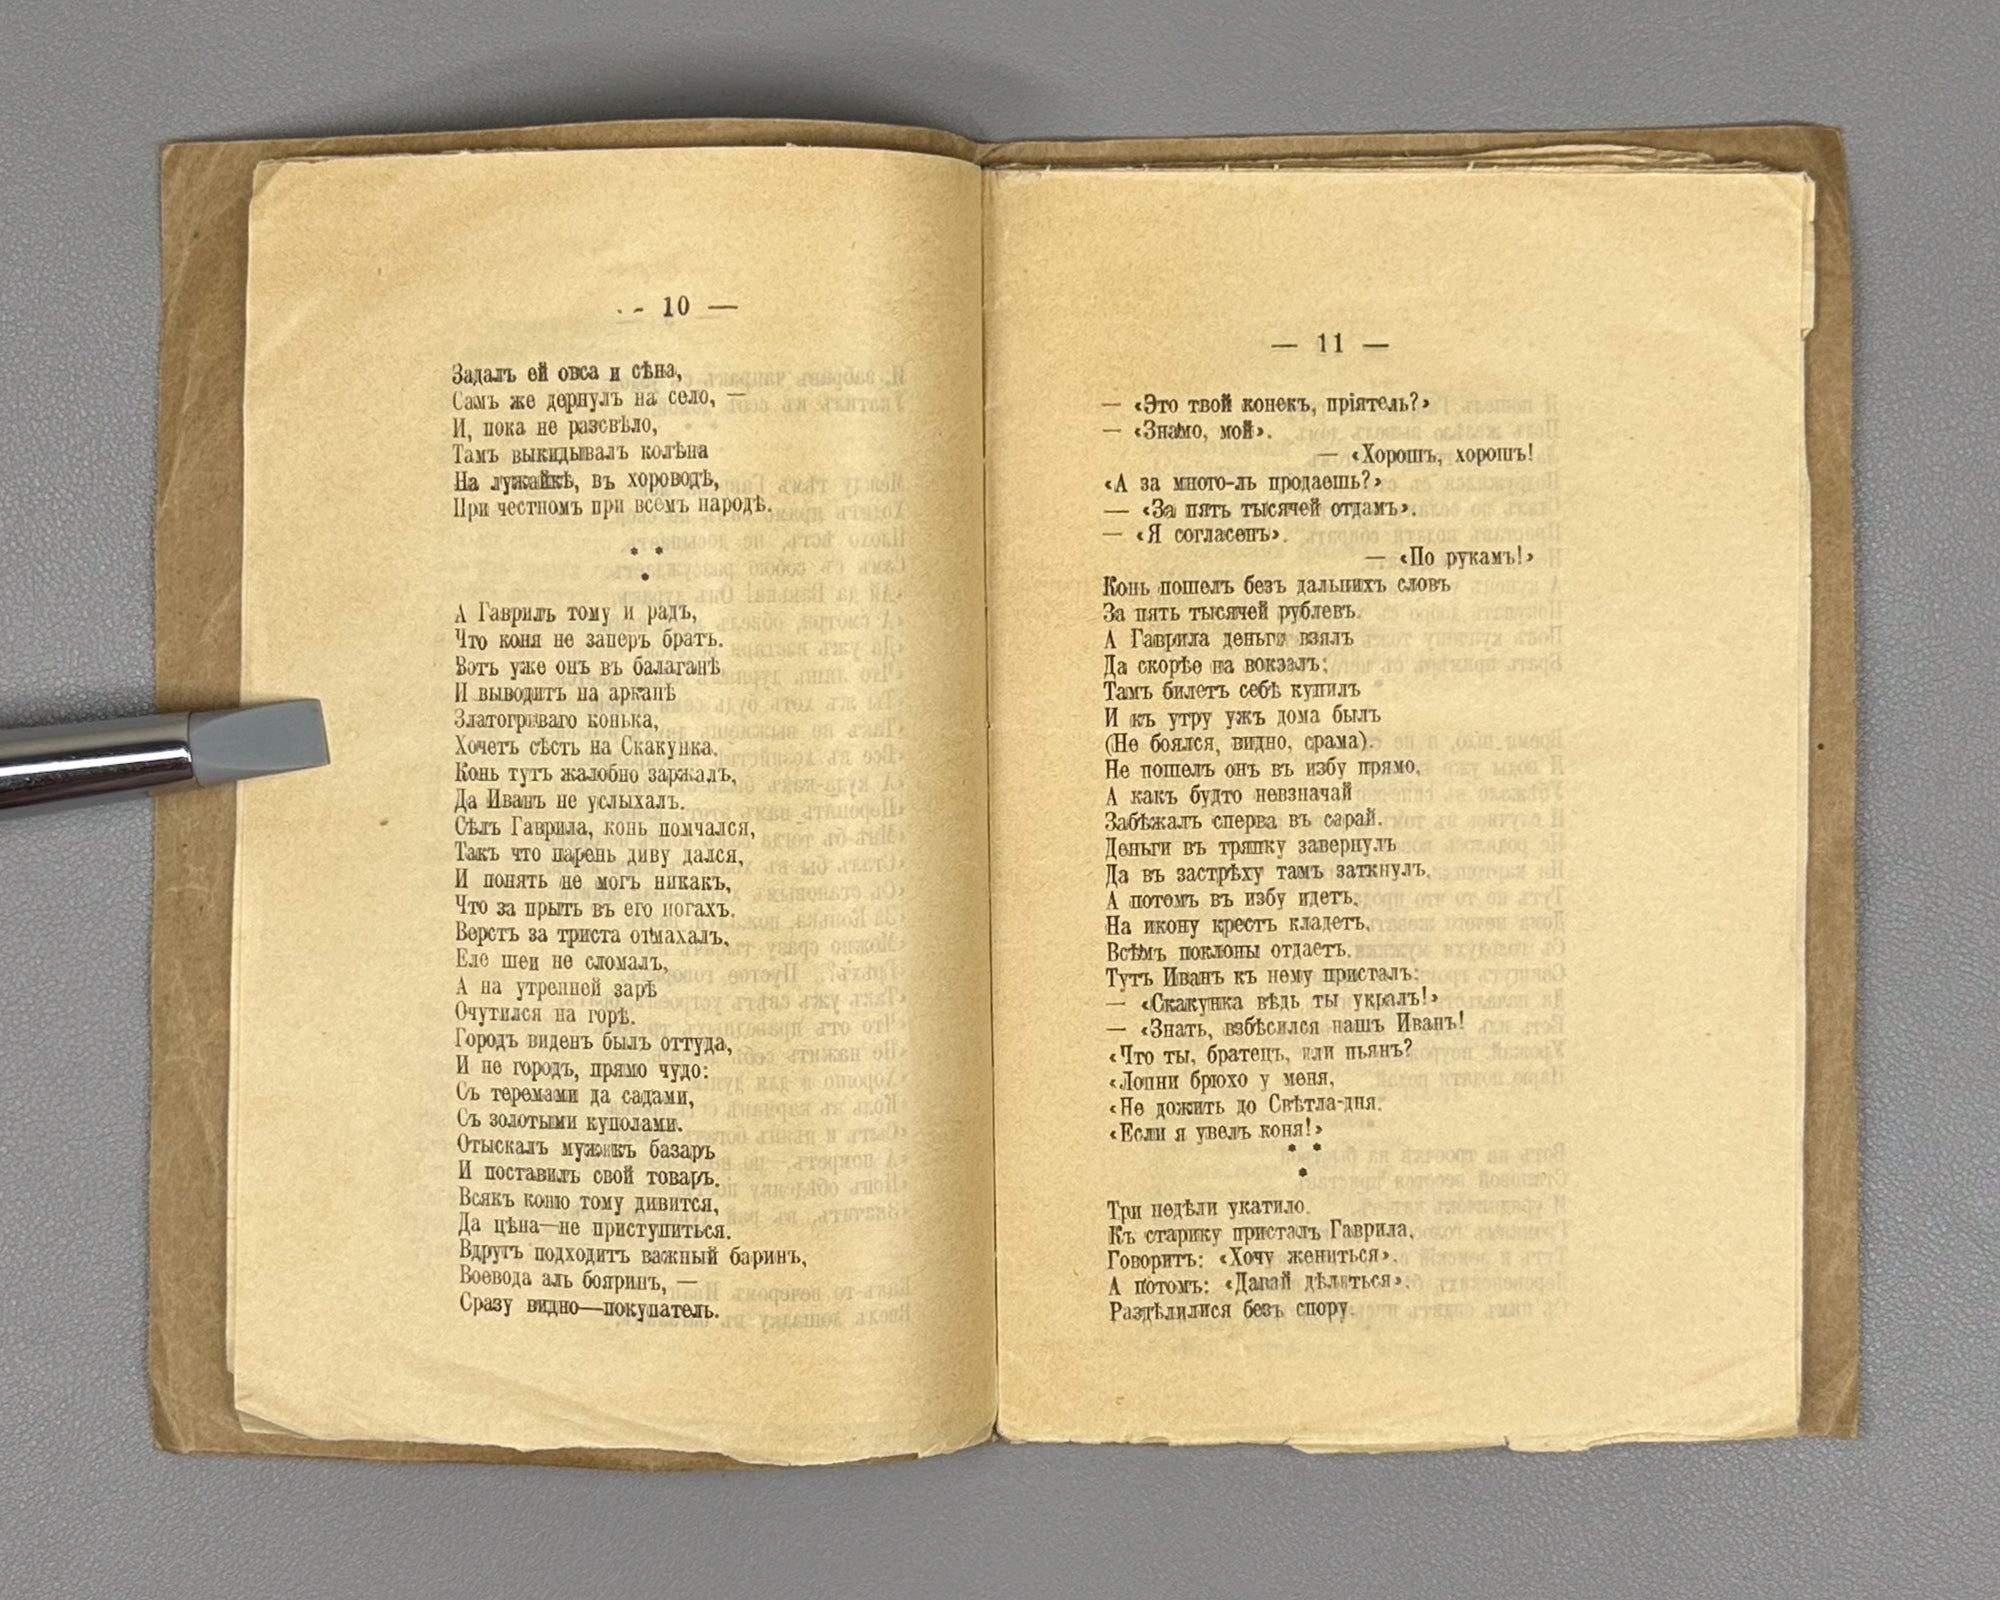 - 10 —
Задалъ ей овса и сѣна,
Самъ же дернулъ на село, —
И, пока не разсвѣло,
Тамъ выкидывалъ колѣна
На лужайкѣ, въ хороводѣ,
При честномъ при всемъ народѣ.
* *
*
А Гаврилъ тому и радъ,
Что коня не заперъ братъ.
Вотъ уже онъ въ балаганѣ
И выводитъ на арканѣ
Златогриваго конька,
Хочетъ сѣсть на Скакунка.
Конь тутъ жалобно заржалъ,
Да Иванъ не услыхалъ.
Сѣлъ Гаврила, конь помчался,
Такъ что парень диву дался,
И понять не могъ никакъ,
Что за прыть въ его ногахъ.
Верстъ за триста отмахалъ,
Еле шеи не сломалъ,
А на утренней зарѣ
Очутился на горѣ.
Городъ виденъ былъ оттуда,
И не городъ, прямо чудо:
Съ теремами да садами,
Съ золотыми куполами.
Отыскалъ мужикъ базаръ
И поставилъ свой товаръ.
Всякъ коню тому дивится,
Да цѣна—не приступиться.
Вдругъ подходитъ важный баринъ,
Воевода аль бояринъ, —
Сразу видно—покупатель.
— 11 —
— «Это твой конекъ, пріятель?»
— «Знамо, мой».
— «Хорошъ, хорошъ!
«А за много-ль продаешь?»
— «За пять тысячей отдамъ».
— «Я согласенъ».
— «По рукамъ!»
Конь пошелъ безъ дальнихъ словъ
За пять тысячей рублевъ.
А Гаврила деньги взялъ
Да скорѣе на вокзалъ;
Тамъ билетъ себѣ купилъ
И къ утру ужъ дома былъ
(Не боялся, видно, срама).
Не пошелъ онъ въ избу прямо,
А какъ будто невзначай
Забѣжалъ сперва въ сарай.
Деньги въ тряпку завернулъ
Да въ застрѣху тамъ заткнулъ,
А потомъ въ избу идетъ,
На икону крестъ кладетъ,
Всѣмъ поклоны отдаетъ.
Тутъ Иванъ къ нему присталъ:
— «Скакунка вѣдь ты укралъ!»
— «Знать, взбѣсился нашъ Иванъ!
«Что ты, братецъ, или пьянъ?
«Лопни брюхо у меня,
«Не дожить до Свѣтла-дня,
«Если я увелъ коня!»
* *
*
Три недѣли укатило.
Къ старику присталъ Гаврила,
Говоритъ: «Хочу жениться».
А потомъ: «Давай дѣлиться».
Раздѣлилися безъ спору.